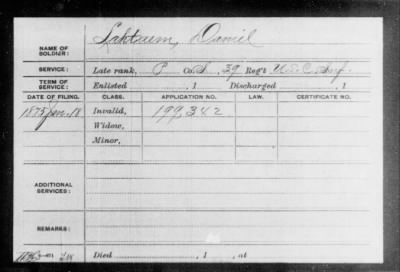 NAME OF SOLDIER: Daniel
SERVICE: Late rank, P Co. 39 Reg't U.S.C. Inf.
TERM OF SERVICE: Enlisted , 1 Discharged , 1
DATE OF FILING. CLASS. APPLICATION NO. LAW. CERTIFICATE NO.
1875 Jan. 18 Invalid, 199,342
Widow,
Minor,
ADDITIONAL SERVICES:
REMARKS:
Died , 1 , at